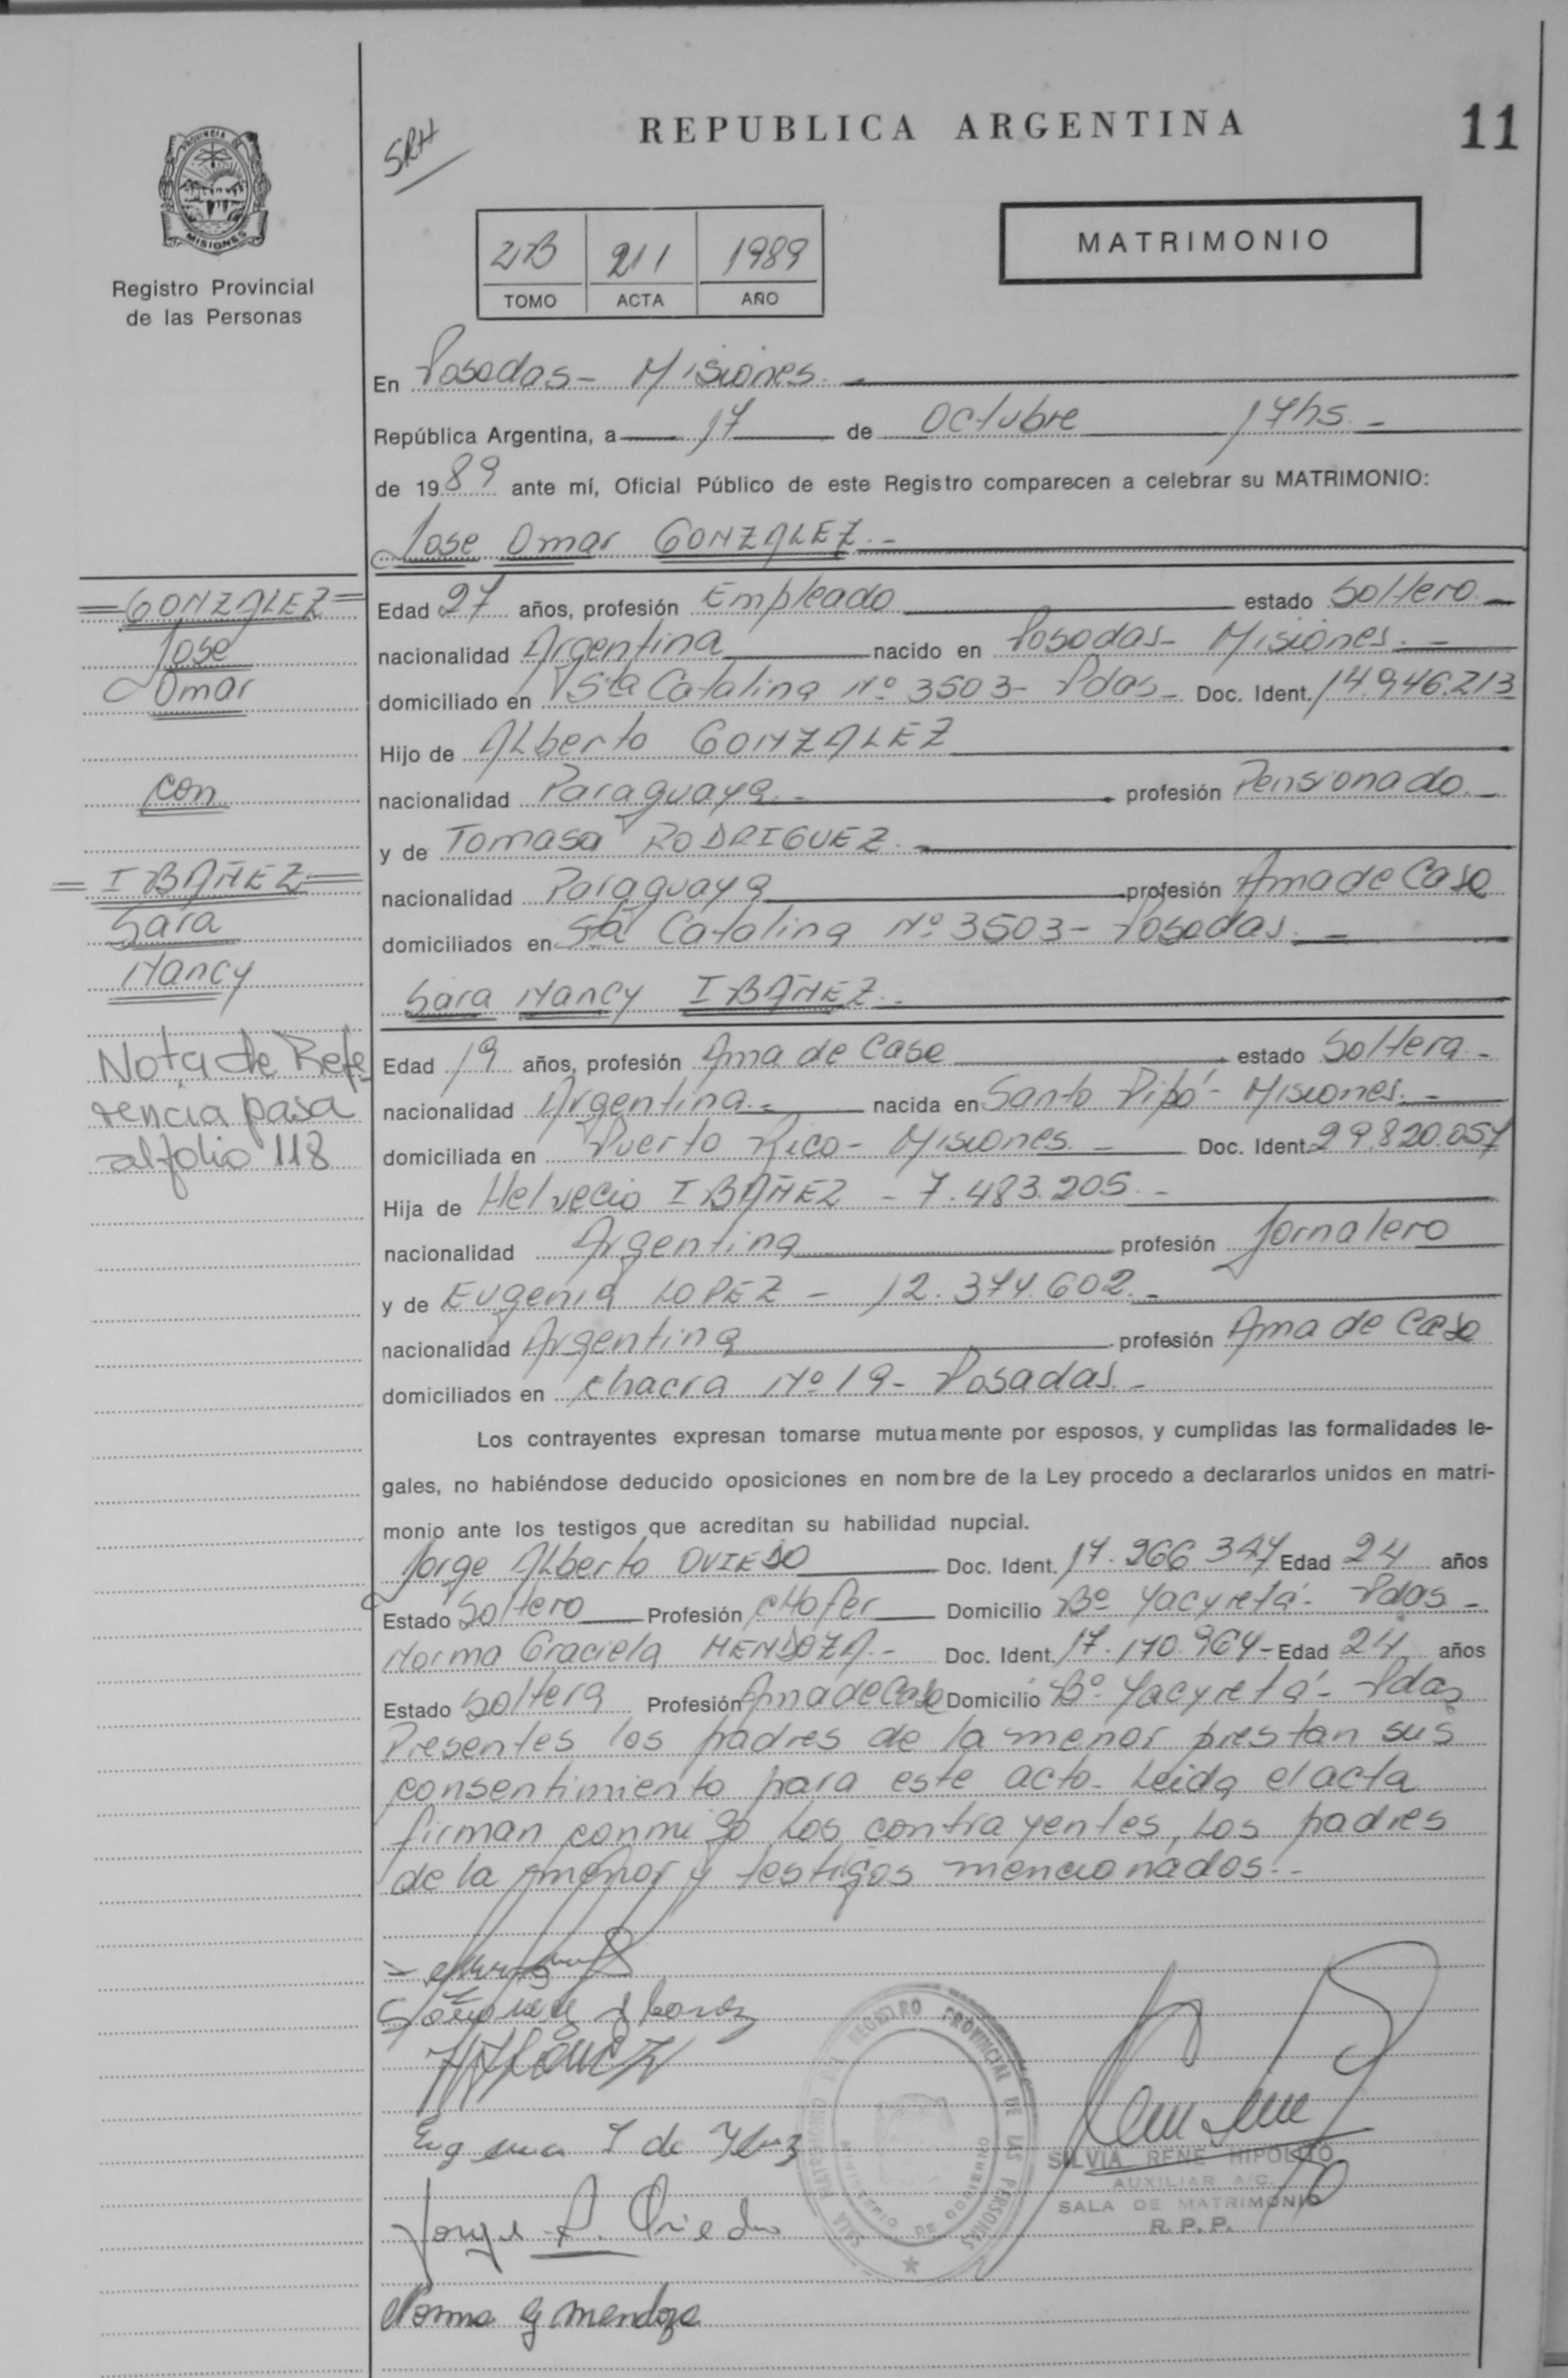 REPUBLICA ARGENTINA
11
SRH
PROVINCIA DE MISIONES
Registro Provincial
de las Personas
211 1989
TOMO ACTA AÑO
MATRIMONIO
En Posadas - Misiones. -
República Argentina, a 17 de Octubre 17hs. -
de 1989 ante mí, Oficial Público de este Registro comparecen a celebrar su MATRIMONIO:
Jose Omar GONZALEZ. -
GONZALEZ
Jose
Omar
con
IBAÑEZ
Sara
Nancy
Nota de Refe-
rencia pasa
al folio 118
Edad 27 años, profesión Empleado estado Soltero. -
nacionalidad Argentina nacido en Posadas - Misiones. -
domiciliado en Sta Catalina Nº 3503 - Pdas - Doc. Ident. 14.946.213
Hijo de Alberto GONZALEZ
nacionalidad Paraguaya. - profesión Pensionado. -
y de Tomasa RODRIGUEZ. -
nacionalidad Paraguaya profesión Ama de Casa
domiciliados en Sta Catalina Nº 3503 - Posadas. -
Sara Nancy IBAÑEZ. -
Edad 19 años, profesión Ama de Casa estado Soltera. -
nacionalidad Argentina. - nacida en Santo Pipó - Misiones. -
domiciliada en Puerto Rico - Misiones. - Doc. Ident. 29.820.057
Hija de Helvecio IBAÑEZ - 7.483.205. -
nacionalidad Argentina profesión Jornalero
y de Eugenia LOPEZ - 12.374.602. -
nacionalidad Argentina profesión Ama de Casa
domiciliados en chacra Nº 19 - Posadas. -
Los contrayentes expresan tomarse mutuamente por esposos, y cumplidas las formalidades le-
gales, no habiéndose deducido oposiciones en nombre de la Ley procedo a declararlos unidos en matri-
monio ante los testigos que acreditan su habilidad nupcial.
Jorge Alberto OVIEDO Doc. Ident. 17.266.347 Edad 24 años
Estado Soltero Profesión chofer Domicilio Bº Yacyretá - Pdas -
Norma Graciela MENDOZA. - Doc. Ident. 17.170.964 - Edad 24 años
Estado Soltera Profesión Ama de Casa Domicilio Bº Yacyretá - Pdas
Presentes los padres de la menor prestan sus
consentimiento para este acto. Leida el acta
firman conmigo los contrayentes, los padres
de la menor y testigos mencionados. -
Jorge A. Oviedo
Norma G Mendoza
REGISTRO PROVINCIAL DE LAS PERSONAS
SALA MATRIMONIO
MINISTERIO DE GOBIERNO
SILVIA RENE HIPOLITO
AUXILIAR A/C.
SALA DE MATRIMONIO
R. P. P.